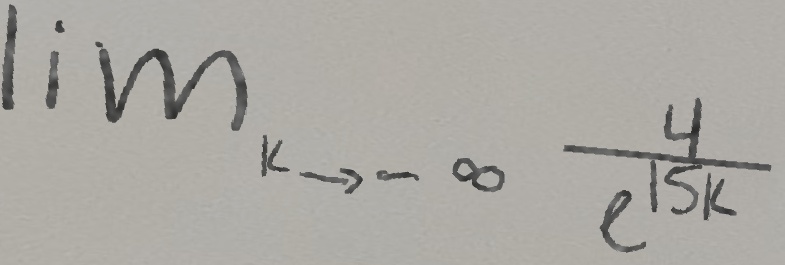 lim k→-∞ 4/e^15k